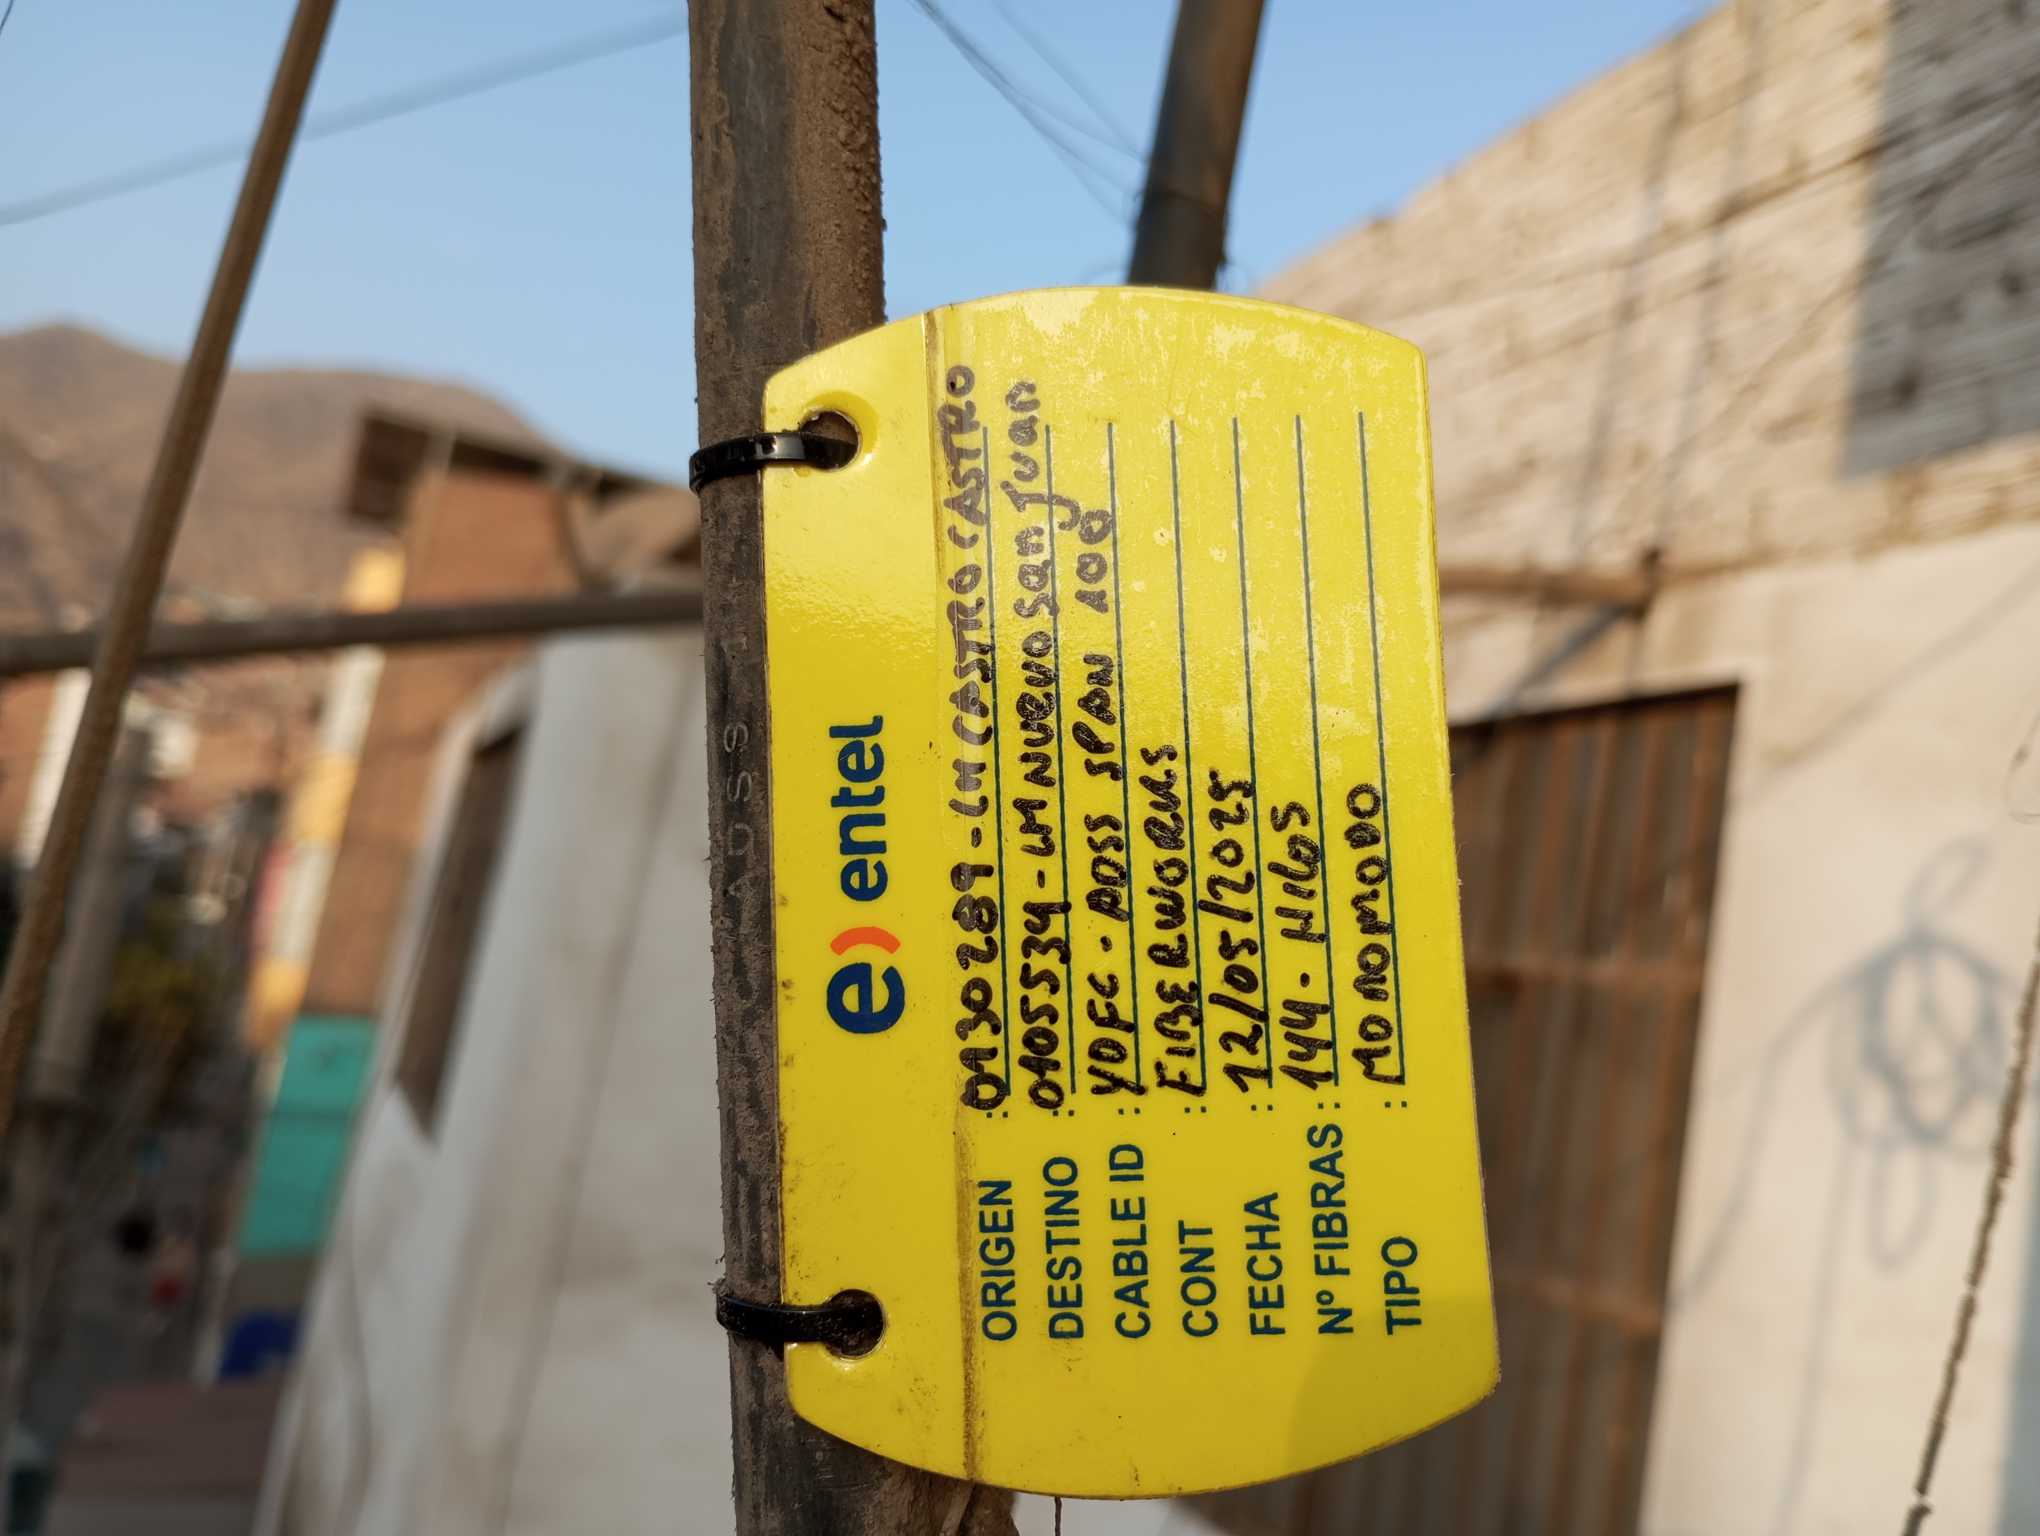 entel
ORIGEN : 0130289 - LM CASTRO CASTRO
DESTINO : 0105534 - LM NUEVO San Juan
CABLE ID : YOFC - ADSS SPAN 100
CONT : FIBERWORKS
FECHA : 12/05/2025
Nº FIBRAS : 144 - HILOS
TIPO : MONOMODO